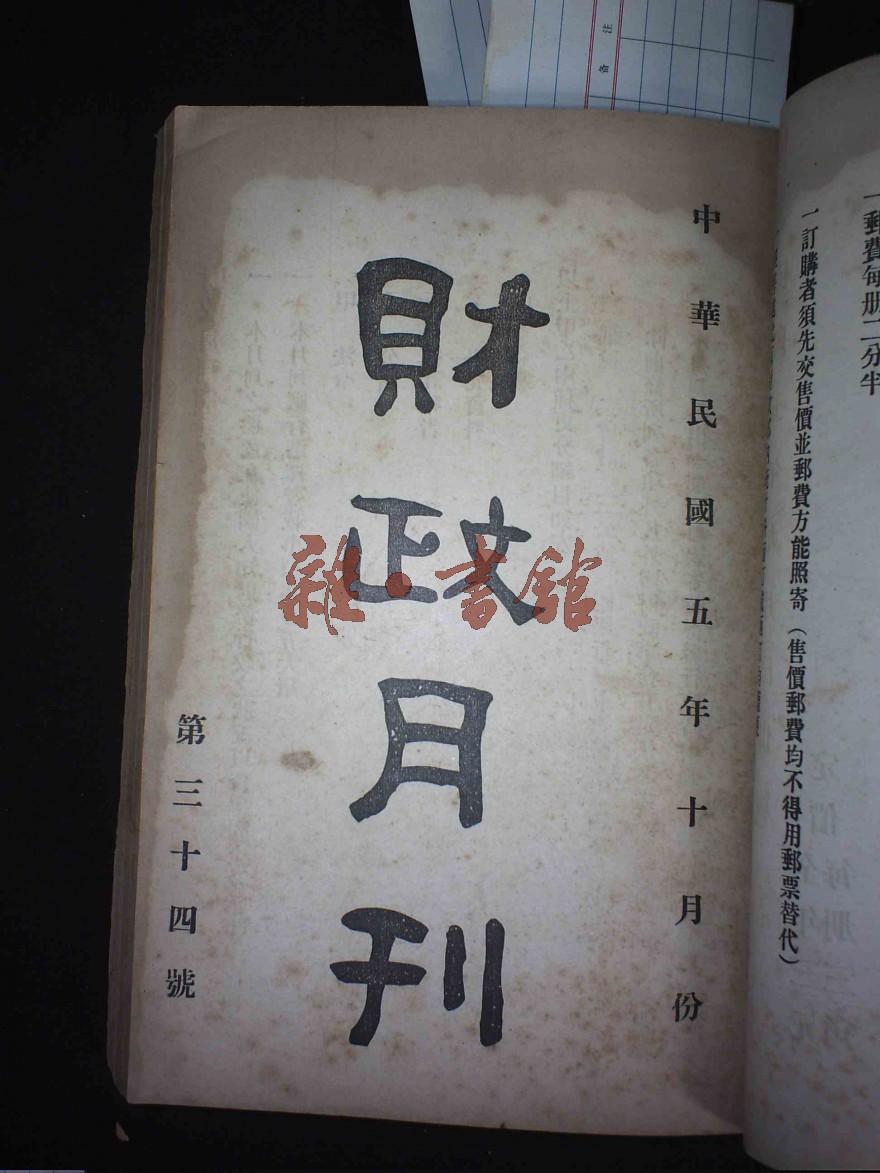 注
备
一郵費每册二分半
一訂購者須先交售價並郵費方能照寄（售價郵費均不得用郵票替代）
中華民國五年十月份
財政月刊
第三十四號
雜·書館